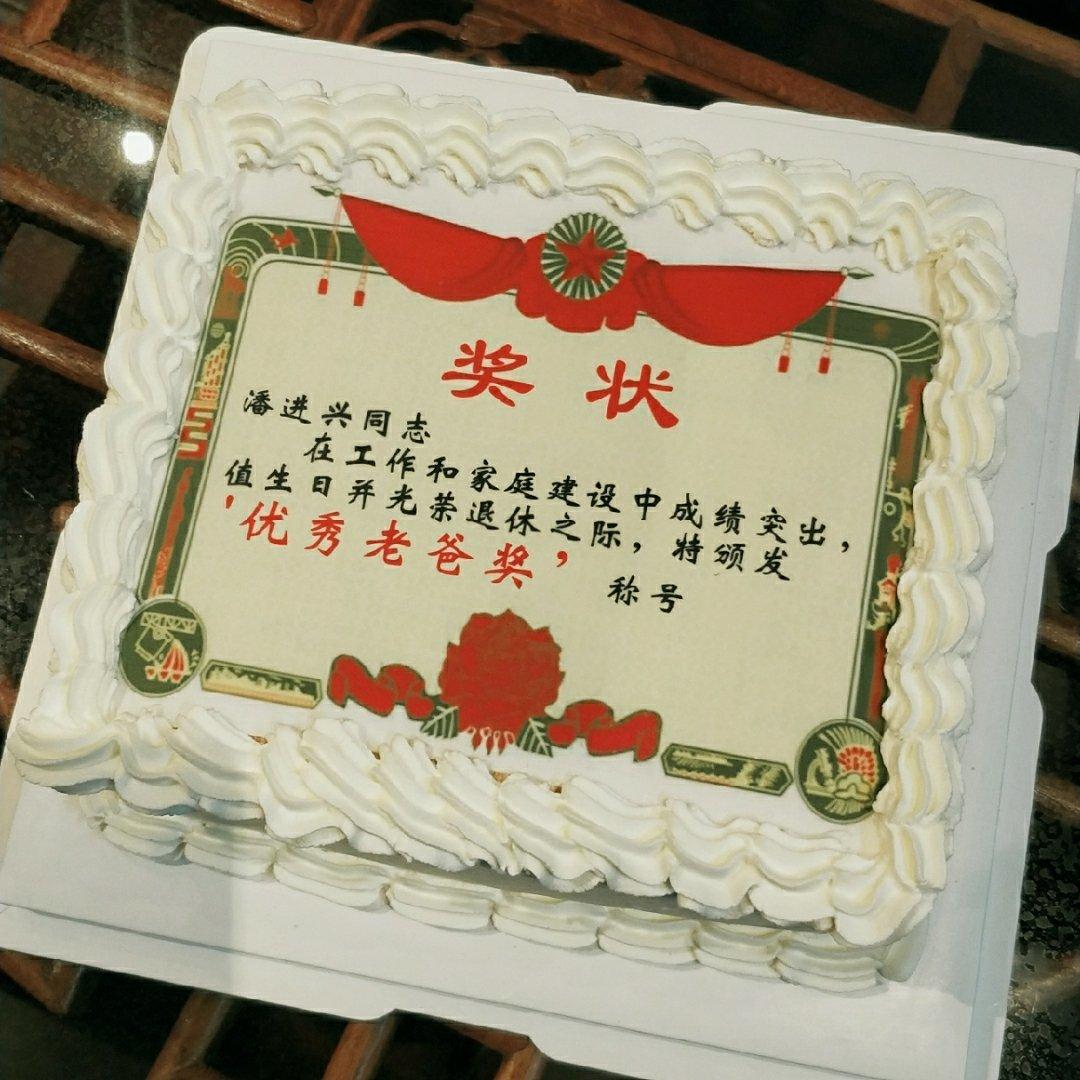 奖状
潘进兴同志
在工作和家庭建设中成绩突出，
值生日并光荣退休之际，特颁发
'优秀老爸奖'
称号